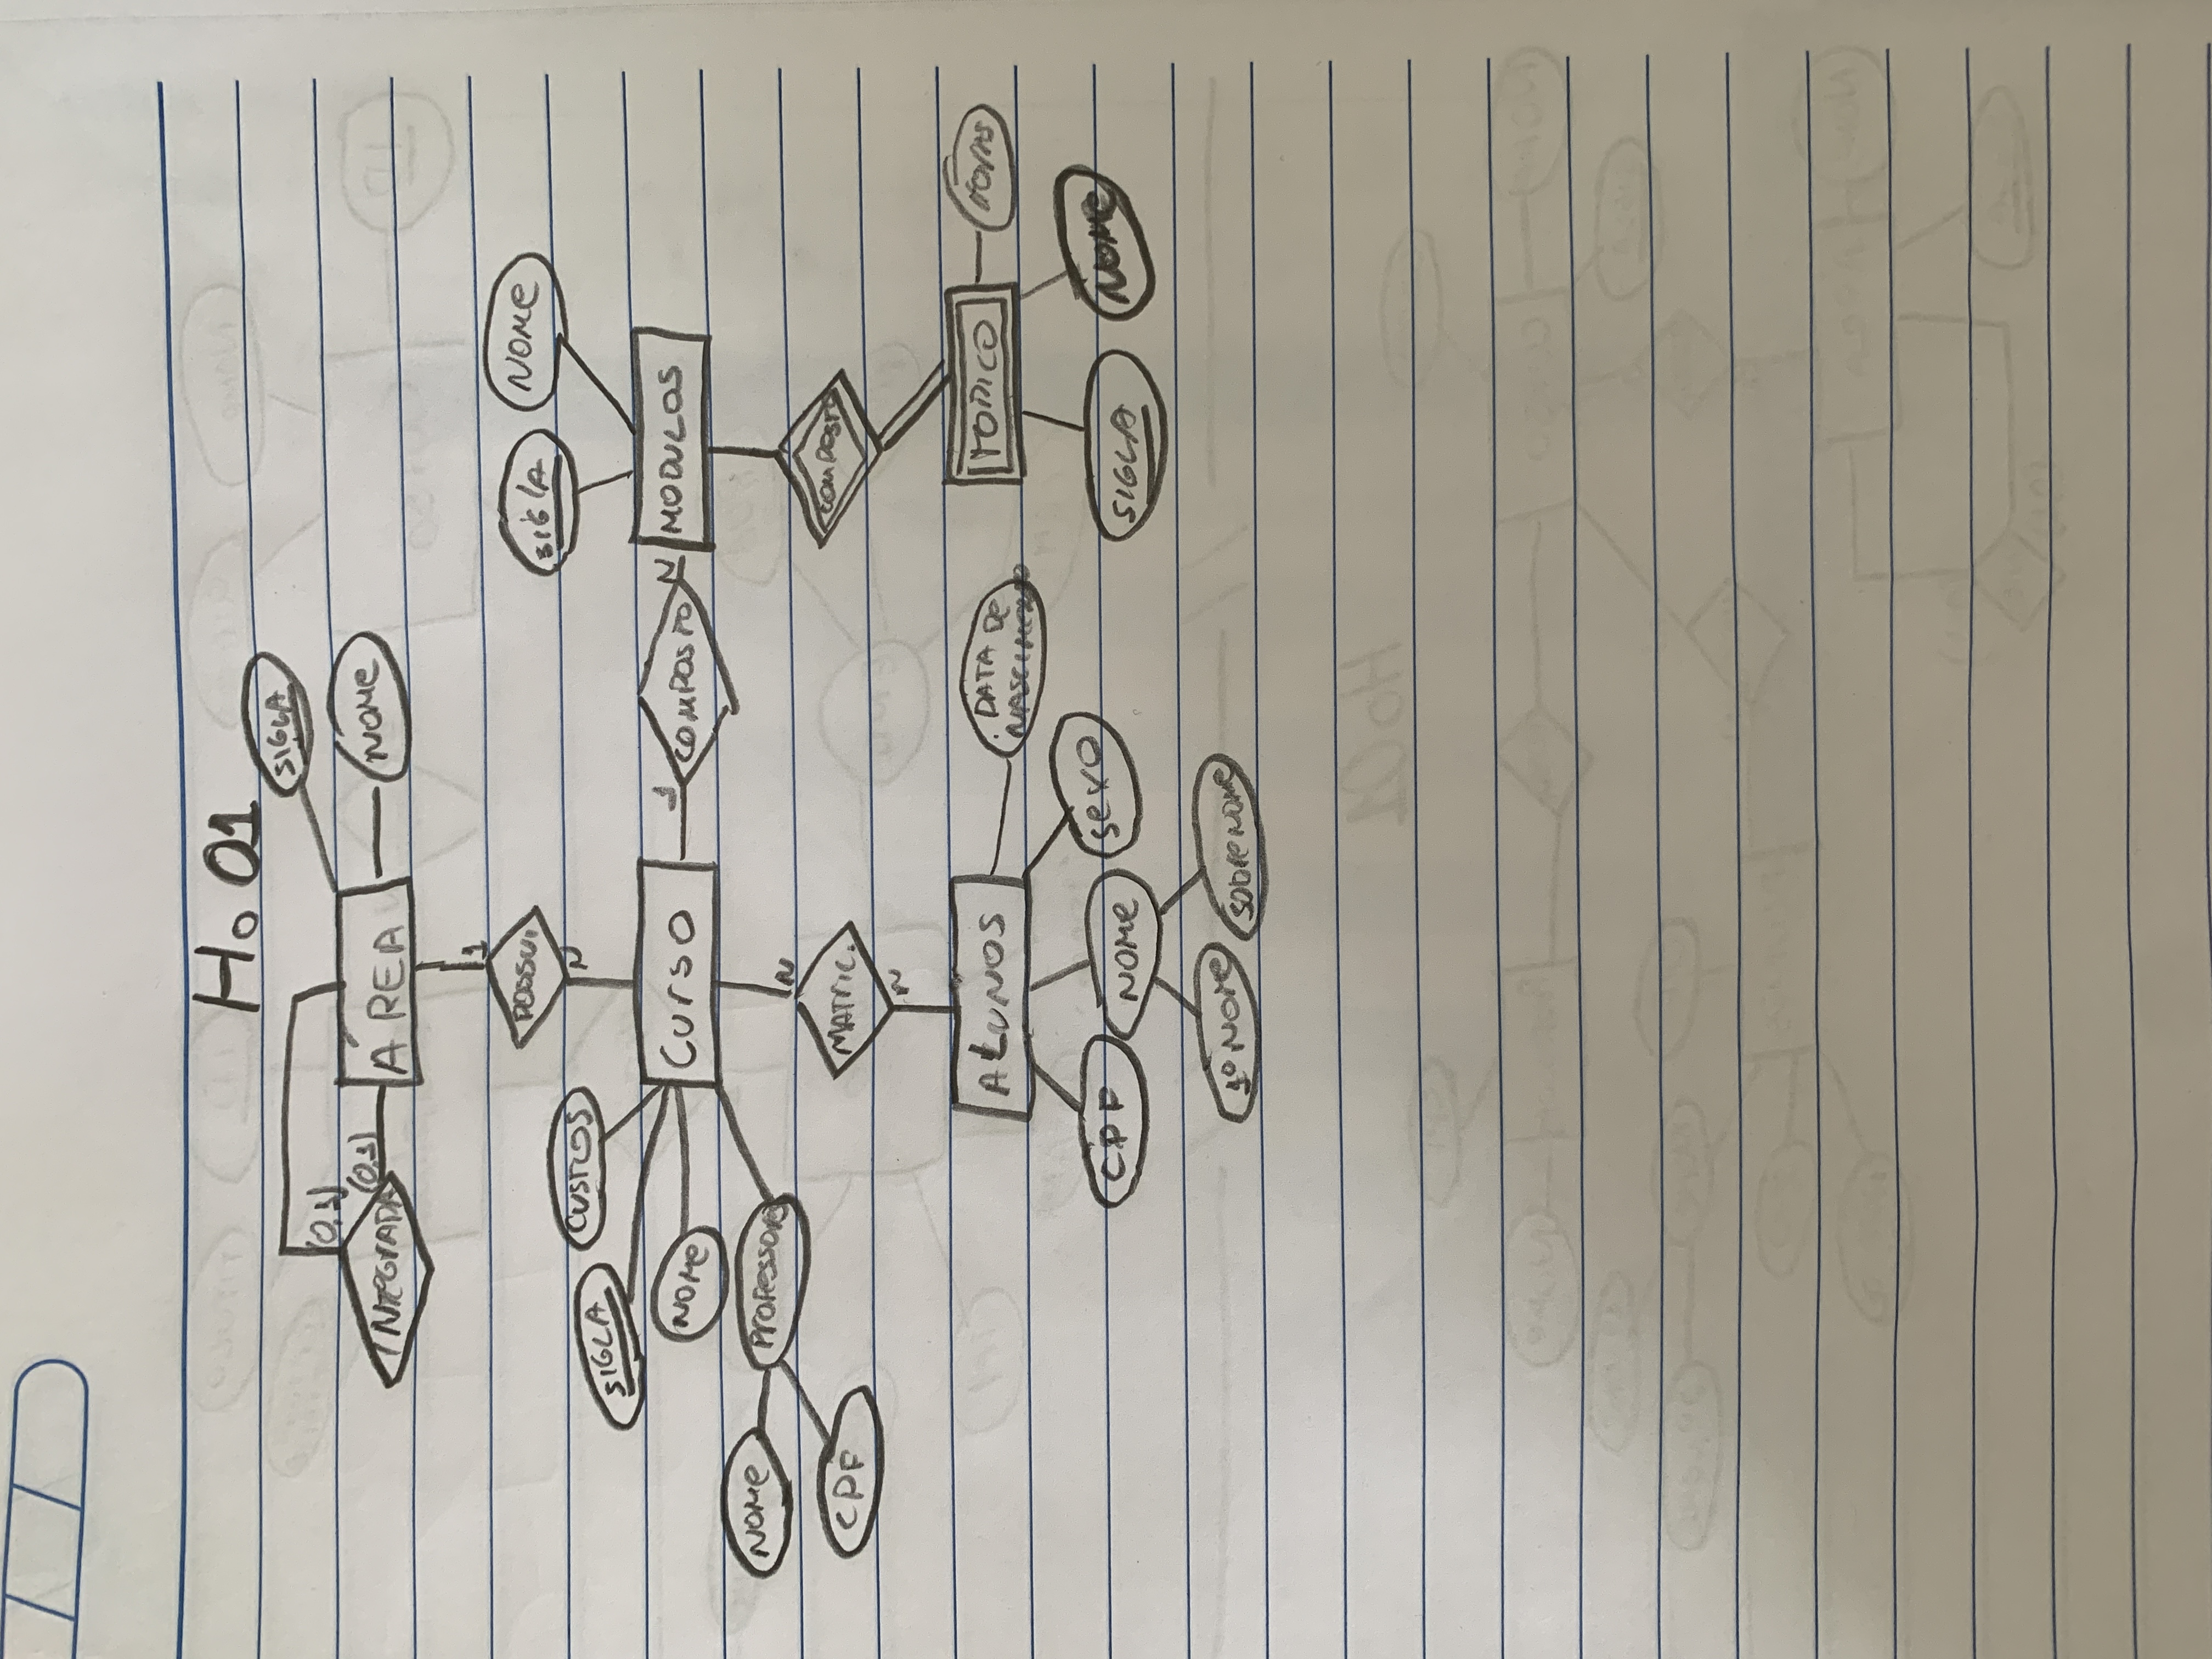 Ho 01
SIGLA
(0,1)
(0,1)
INTEGRADA
AREA
NOME
1
POSSUI
N
SIGLA
NOME
CUSTOS
SIGLA
NOME
CURSO
1
COMPOSTO
N
MODULOS
NOME
PROFESSORES
CPF
N
MATRIC.
N
COMPOSTO
ALUNOS
DATA DE
NASCIMENTO
TOPICO
CPF
NOME
SEXO
SIGLA
NOME
1º NOME
SOBRENOME